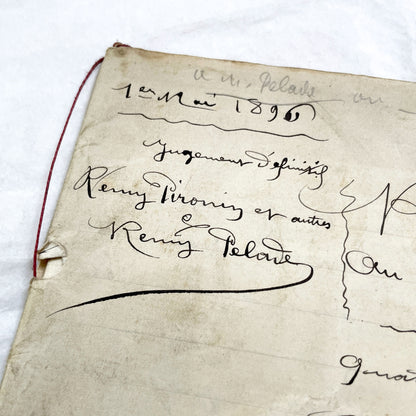 a M. Pelade
1er Mai 1896
Jugement Définitif
Remy Pironin et autres
c
Remy Pelade
au